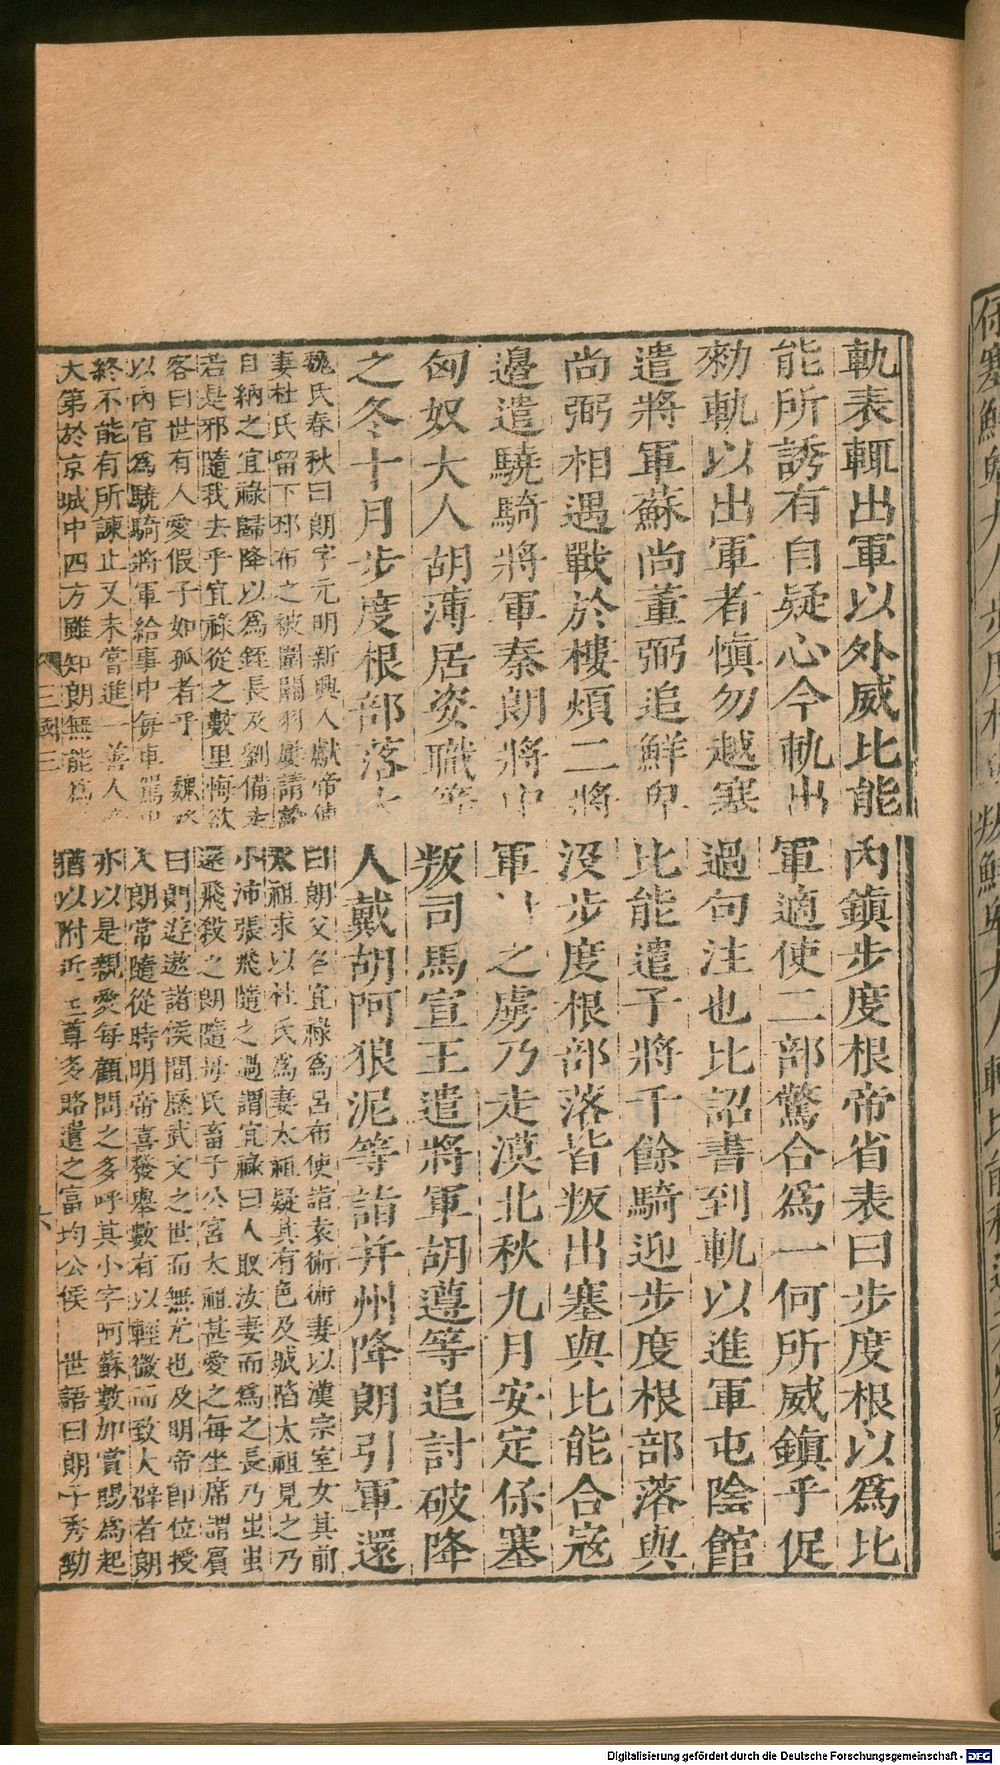 軌表輒出軍以外威比能內鎮步度根帝省表曰步度根以爲比
能所誘有自疑心今軌出軍適使二部驚合爲一何所威鎮乎促
勑軌以出軍者慎勿越塞過句注也比詔書到軌以進軍屯陰館
遣將軍蘇尚董弼追鮮卑比能遣子將千餘騎迎步度根部落與
尚弼相遇戰於樓煩二將沒步度根部落皆叛出塞與比能合寇
邉遣驍騎將軍秦朗將中軍之虜乃走漠北秋九月安定保塞
匈奴大人胡薄居姿職等叛司馬宣王遣將軍胡遵等追討破降
之冬十月步度根部落大人戴胡阿狼泥等詣并州降朗引軍還
魏氏春秋曰朗字元明新興人獻帝傳曰朗父名宜祿爲呂布使詣袁術術妻以漢宗室女其前
妻杜氏留下邳布之被圍關羽屢請於太祖求以杜氏爲妻太祖疑其有色及城陷太祖見之乃
自納之宜祿歸降以爲銍長及劉備走小沛張飛隨之過謂宜祿曰人取汝妻而爲之長乃蚩蚩
若是邪隨我去乎宜祿從之數里悔欲還飛殺之朗隨母氏畜于公宮太祖甚愛之每坐席謂賓
客曰世有人愛假子如孤者乎 魏略曰朗遊遨諸侯間歷武文之世而無尤也及明帝卽位授
以內官爲驍騎將軍給事中每車駕出入朗常隨從時明帝喜發舉數有以輕微而致大辟者朗
終不能有所諫止又未嘗進一善人亦以是親愛每顧問之多呼其小字阿蘇數加賞賜爲起
大第於京城中四方雖知朗無能爲猶以附近至尊多賂遺之富均公侯 世語曰朗子秀勁
三國三
六
Digitalisierung gefördert durch die Deutsche Forschungsgemeinschaft - DFG